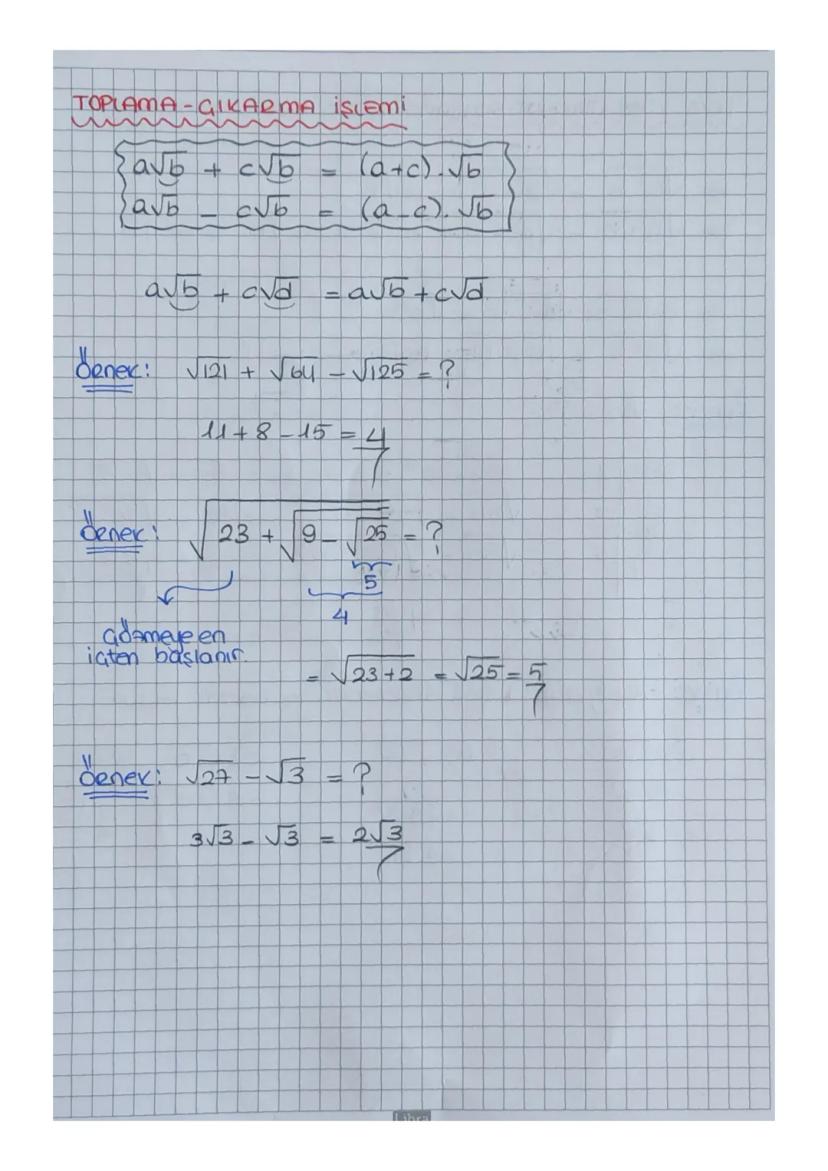 TOPLAMA-ÇIKARMA İŞLEMİ
a√b + c√b = (a+c).√b
a√b - c√b = (a-c).√b
a√b + c√d = a√b + c√d
Örnek: √121 + √64 - √125 = ?
11+8-15 = 4
Örnek: √(23 + √(9 - √25)) = ?
5
4
çözmeye en
içten başlanır.
= √(23+2) = √25 = 5
Örnek: √27 - √3 = ?
3√3 - √3 = 2√3
Libra